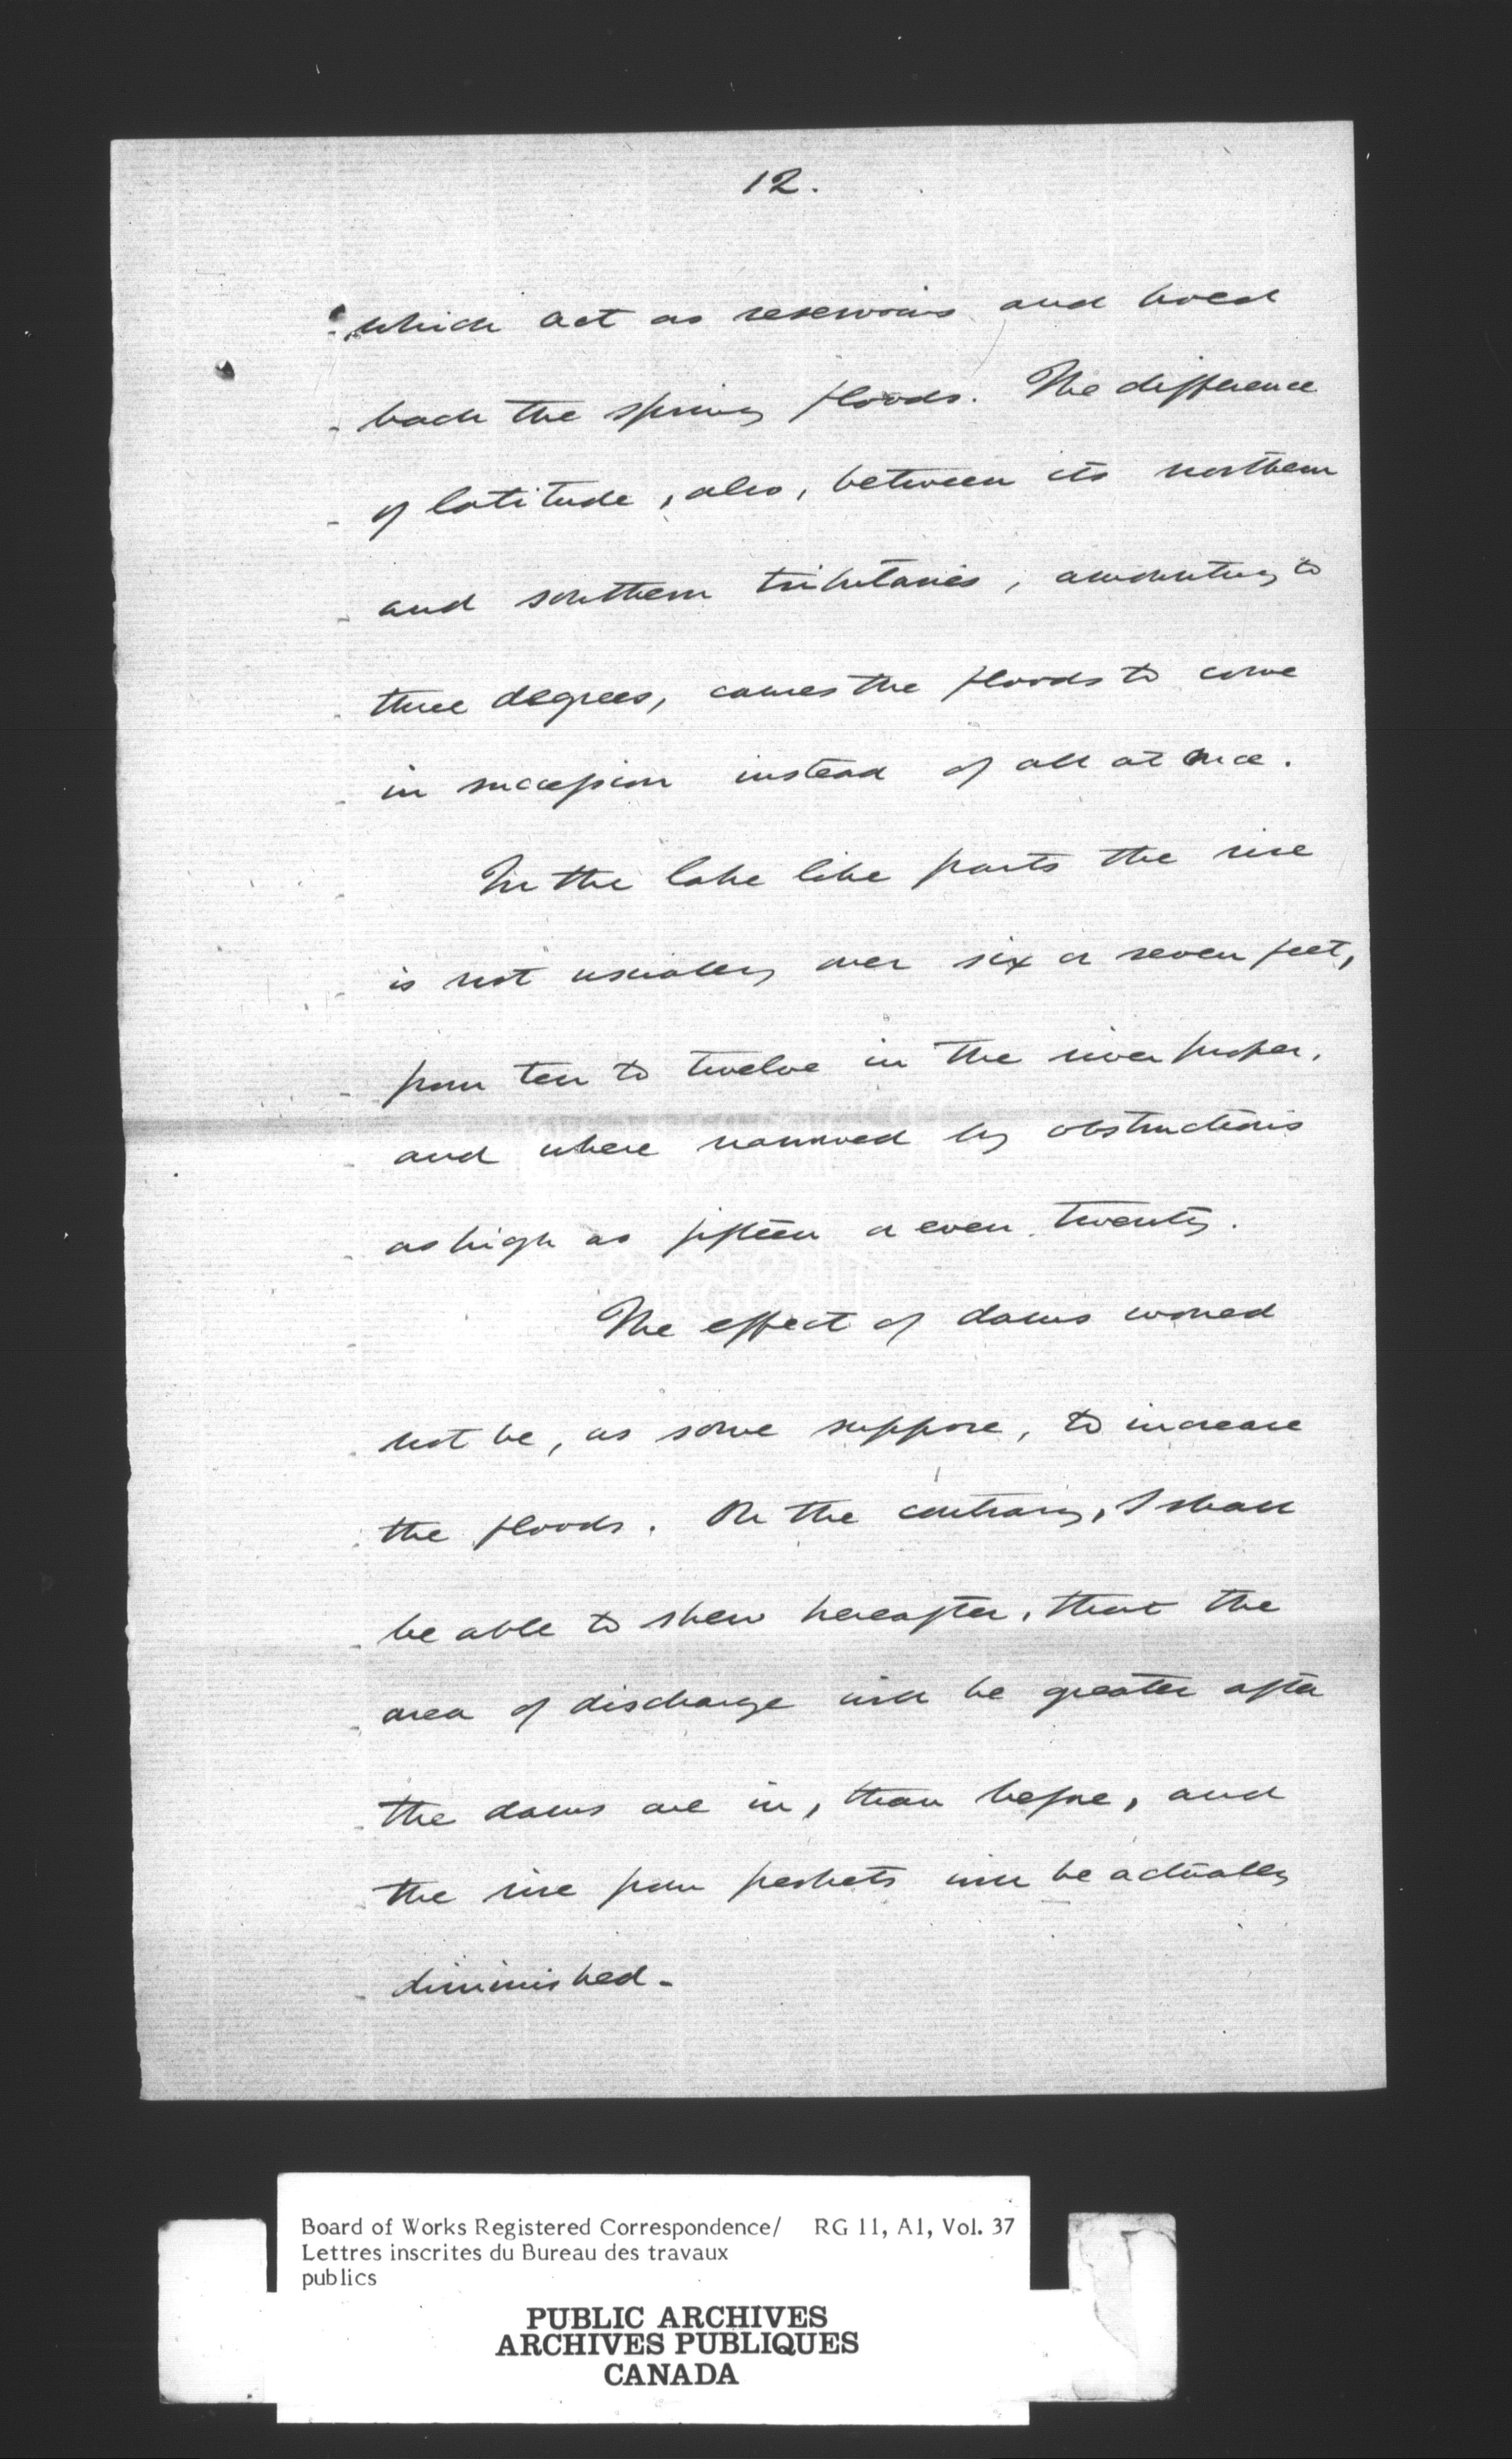 12.
which act as reservoirs and hold
back the spring floods. The difference
of latitude, also, between its northern
and southern tributaries, amounting to
three degrees, causes the floods to come
in succession instead of all at once.
In the lake like parts the rise
is not usually over six or seven feet,
from ten to twelve in the river proper,
and where narrowed by obstructions
as high as fifteen or even twenty.
The effect of dams would
not be, as some suppose, to increase
the floods. On the contrary, I shall
be able to shew hereafter, that the
area of discharge will be greater after
the dams are in, than before, and
the rise from freshets will be actually
diminished-
Board of Works Registered Correspondence/ RG 11, A1, Vol. 37
Lettres inscrites du Bureau des travaux
publics
PUBLIC ARCHIVES
ARCHIVES PUBLIQUES
CANADA